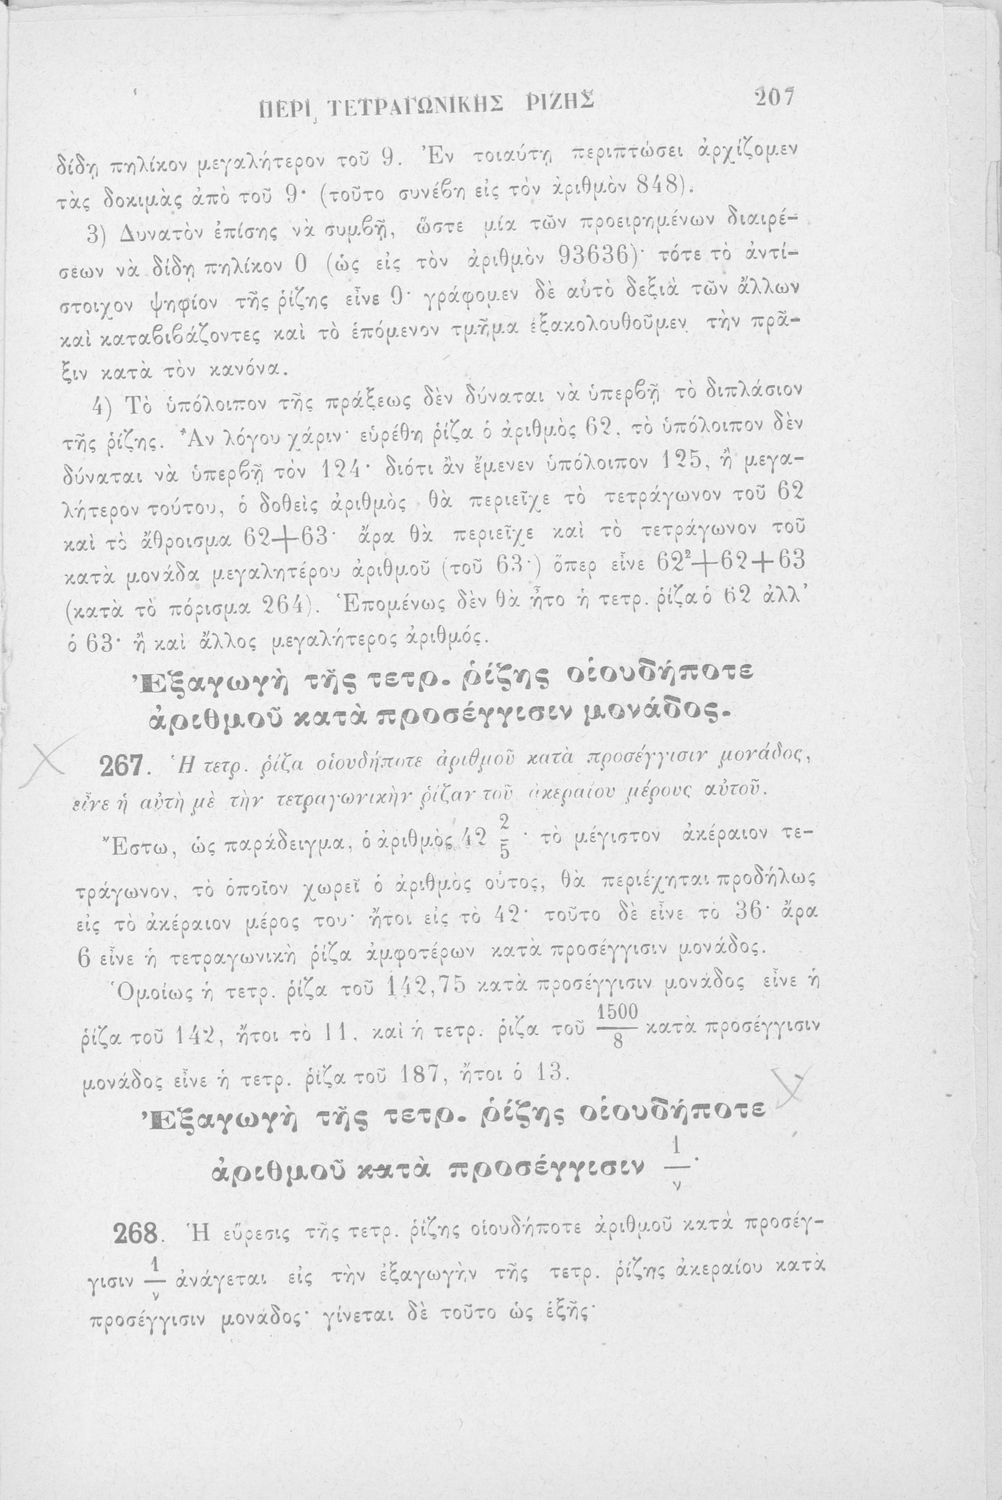 ΠΕΡΙ ΤΕΤΡΑΓΩΝΙΚΗΣ ΡΙΖΗΣ 207
δίδῃ πηλίκον μεγαλήτερον τοῦ 9. Ἐν τοιαύτῃ περιπτώσει ἀρχίζομεν
τὰς δοκιμὰς ἀπὸ τοῦ 9· (τοῦτο συνέβη εἰς τὸν ἀριθμὸν 848).
3) Δυνατὸν ἐπίσης νὰ συμβῇ, ὥστε μία τῶν προειρημένων διαιρέ-
σεων νὰ δίδῃ πηλίκον 0 (ὡς εἰς τὸν ἀριθμὸν 93636)· τότε τὸ ἀντί-
στοιχον ψηφίον τῆς ῥίζης εἶνε 0· γράφομεν δὲ αὐτὸ δεξιὰ τῶν ἄλλων
καὶ καταβιβάζοντες καὶ τὸ ἑπόμενον τμῆμα ἐξακολουθοῦμεν τὴν πρᾶ-
ξιν κατὰ τὸν κανόνα.
4) Τὸ ὑπόλοιπον τῆς πράξεως δὲν δύναται νὰ ὑπερβῇ τὸ διπλάσιον
τῆς ῥίζης. Ἂν λόγου χάριν· εὑρέθη ῥίζα ὁ ἀριθμὸς 62, τὸ ὑπόλοιπον δὲν
δύναται νὰ ὑπερβῇ τὸν 124· διότι ἂν ἔμενεν ὑπόλοιπον 125, ἢ μεγα-
λήτερον τούτου, ὁ δοθεὶς ἀριθμὸς θὰ περιεῖχε τὸ τετράγωνον τοῦ 62
καὶ τὸ ἄθροισμα 62+63· ἄρα θὰ περιεῖχε καὶ τὸ τετράγωνον τοῦ
κατὰ μονάδα μεγαλητέρου ἀριθμοῦ (τοῦ 63·) ὅπερ εἶνε 62²+62+63
(κατὰ τὸ πόρισμα 264). Ἑπομένως δὲν θὰ ἦτο ἡ τετρ. ῥίζα ὁ 62 ἀλλ'
ὁ 63· ἢ καὶ ἄλλος μεγαλήτερος ἀριθμός.
Ἐξαγωγὴ τῆς τετρ. ῥίζης οἱουδήποτε
ἀριθμοῦ κατὰ προσέγγισιν μονάδος.
267. Ἡ τετρ. ῥίζα οἱουδήποτε ἀριθμοῦ κατὰ προσέγγισιν μονάδος,
εἶνε ἡ αὐτὴ μὲ τὴν τετραγωνικὴν ῥίζαν τοῦ ἀκεραίου μέρους αὐτοῦ.
Ἔστω, ὡς παράδειγμα, ὁ ἀριθμὸς 42 2/5 · τὸ μέγιστον ἀκέραιον τε-
τράγωνον, τὸ ὁποῖον χωρεῖ ὁ ἀριθμὸς οὗτος, θὰ περιέχηται προδήλως
εἰς τὸ ἀκέραιον μέρος του· ἤτοι εἰς τὸ 42· τοῦτο δὲ εἶνε τὸ 36· ἄρα
6 εἶνε ἡ τετραγωνικὴ ῥίζα ἀμφοτέρων κατὰ προσέγγισιν μονάδος.
Ὁμοίως ἡ τετρ. ῥίζα τοῦ 142,75 κατὰ προσέγγισιν μονάδος εἶνε ἡ
ῥίζα τοῦ 142, ἤτοι τὸ 11, καὶ ἡ τετρ. ῥίζα τοῦ 1500/8 κατὰ προσέγγισιν
μονάδος εἶνε ἡ τετρ. ῥίζα τοῦ 187, ἤτοι ὁ 13.
Ἐξαγωγὴ τῆς τετρ. ῥίζης οἱουδήποτε
ἀριθμοῦ κατὰ προσέγγισιν 1/ν·
268. Ἡ εὕρεσις τῆς τετρ. ῥίζης οἱουδήποτε ἀριθμοῦ κατὰ προσέγ-
γισιν 1/ν ἀνάγεται εἰς τὴν ἐξαγωγὴν τῆς τετρ. ῥίζης ἀκεραίου κατὰ
προσέγγισιν μονάδος· γίνεται δὲ τοῦτο ὡς ἑξῆς·